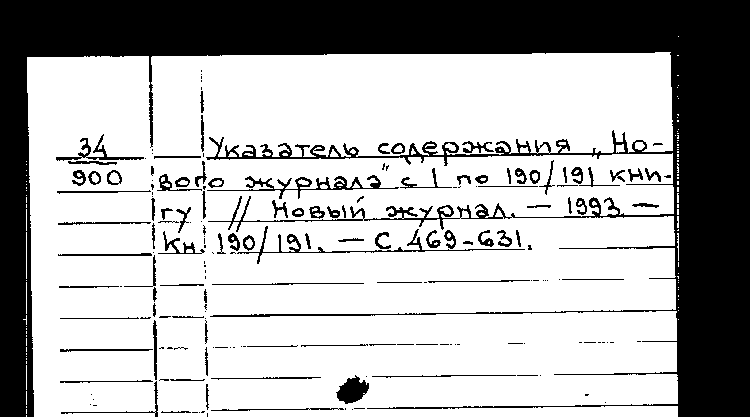 34 Указатель содержания „Но-
900 вого журнала" с 1 по 190/191 кни-
гу // Новый журнал. — 1993 —
Кн. 190/191. — С. 469-631.